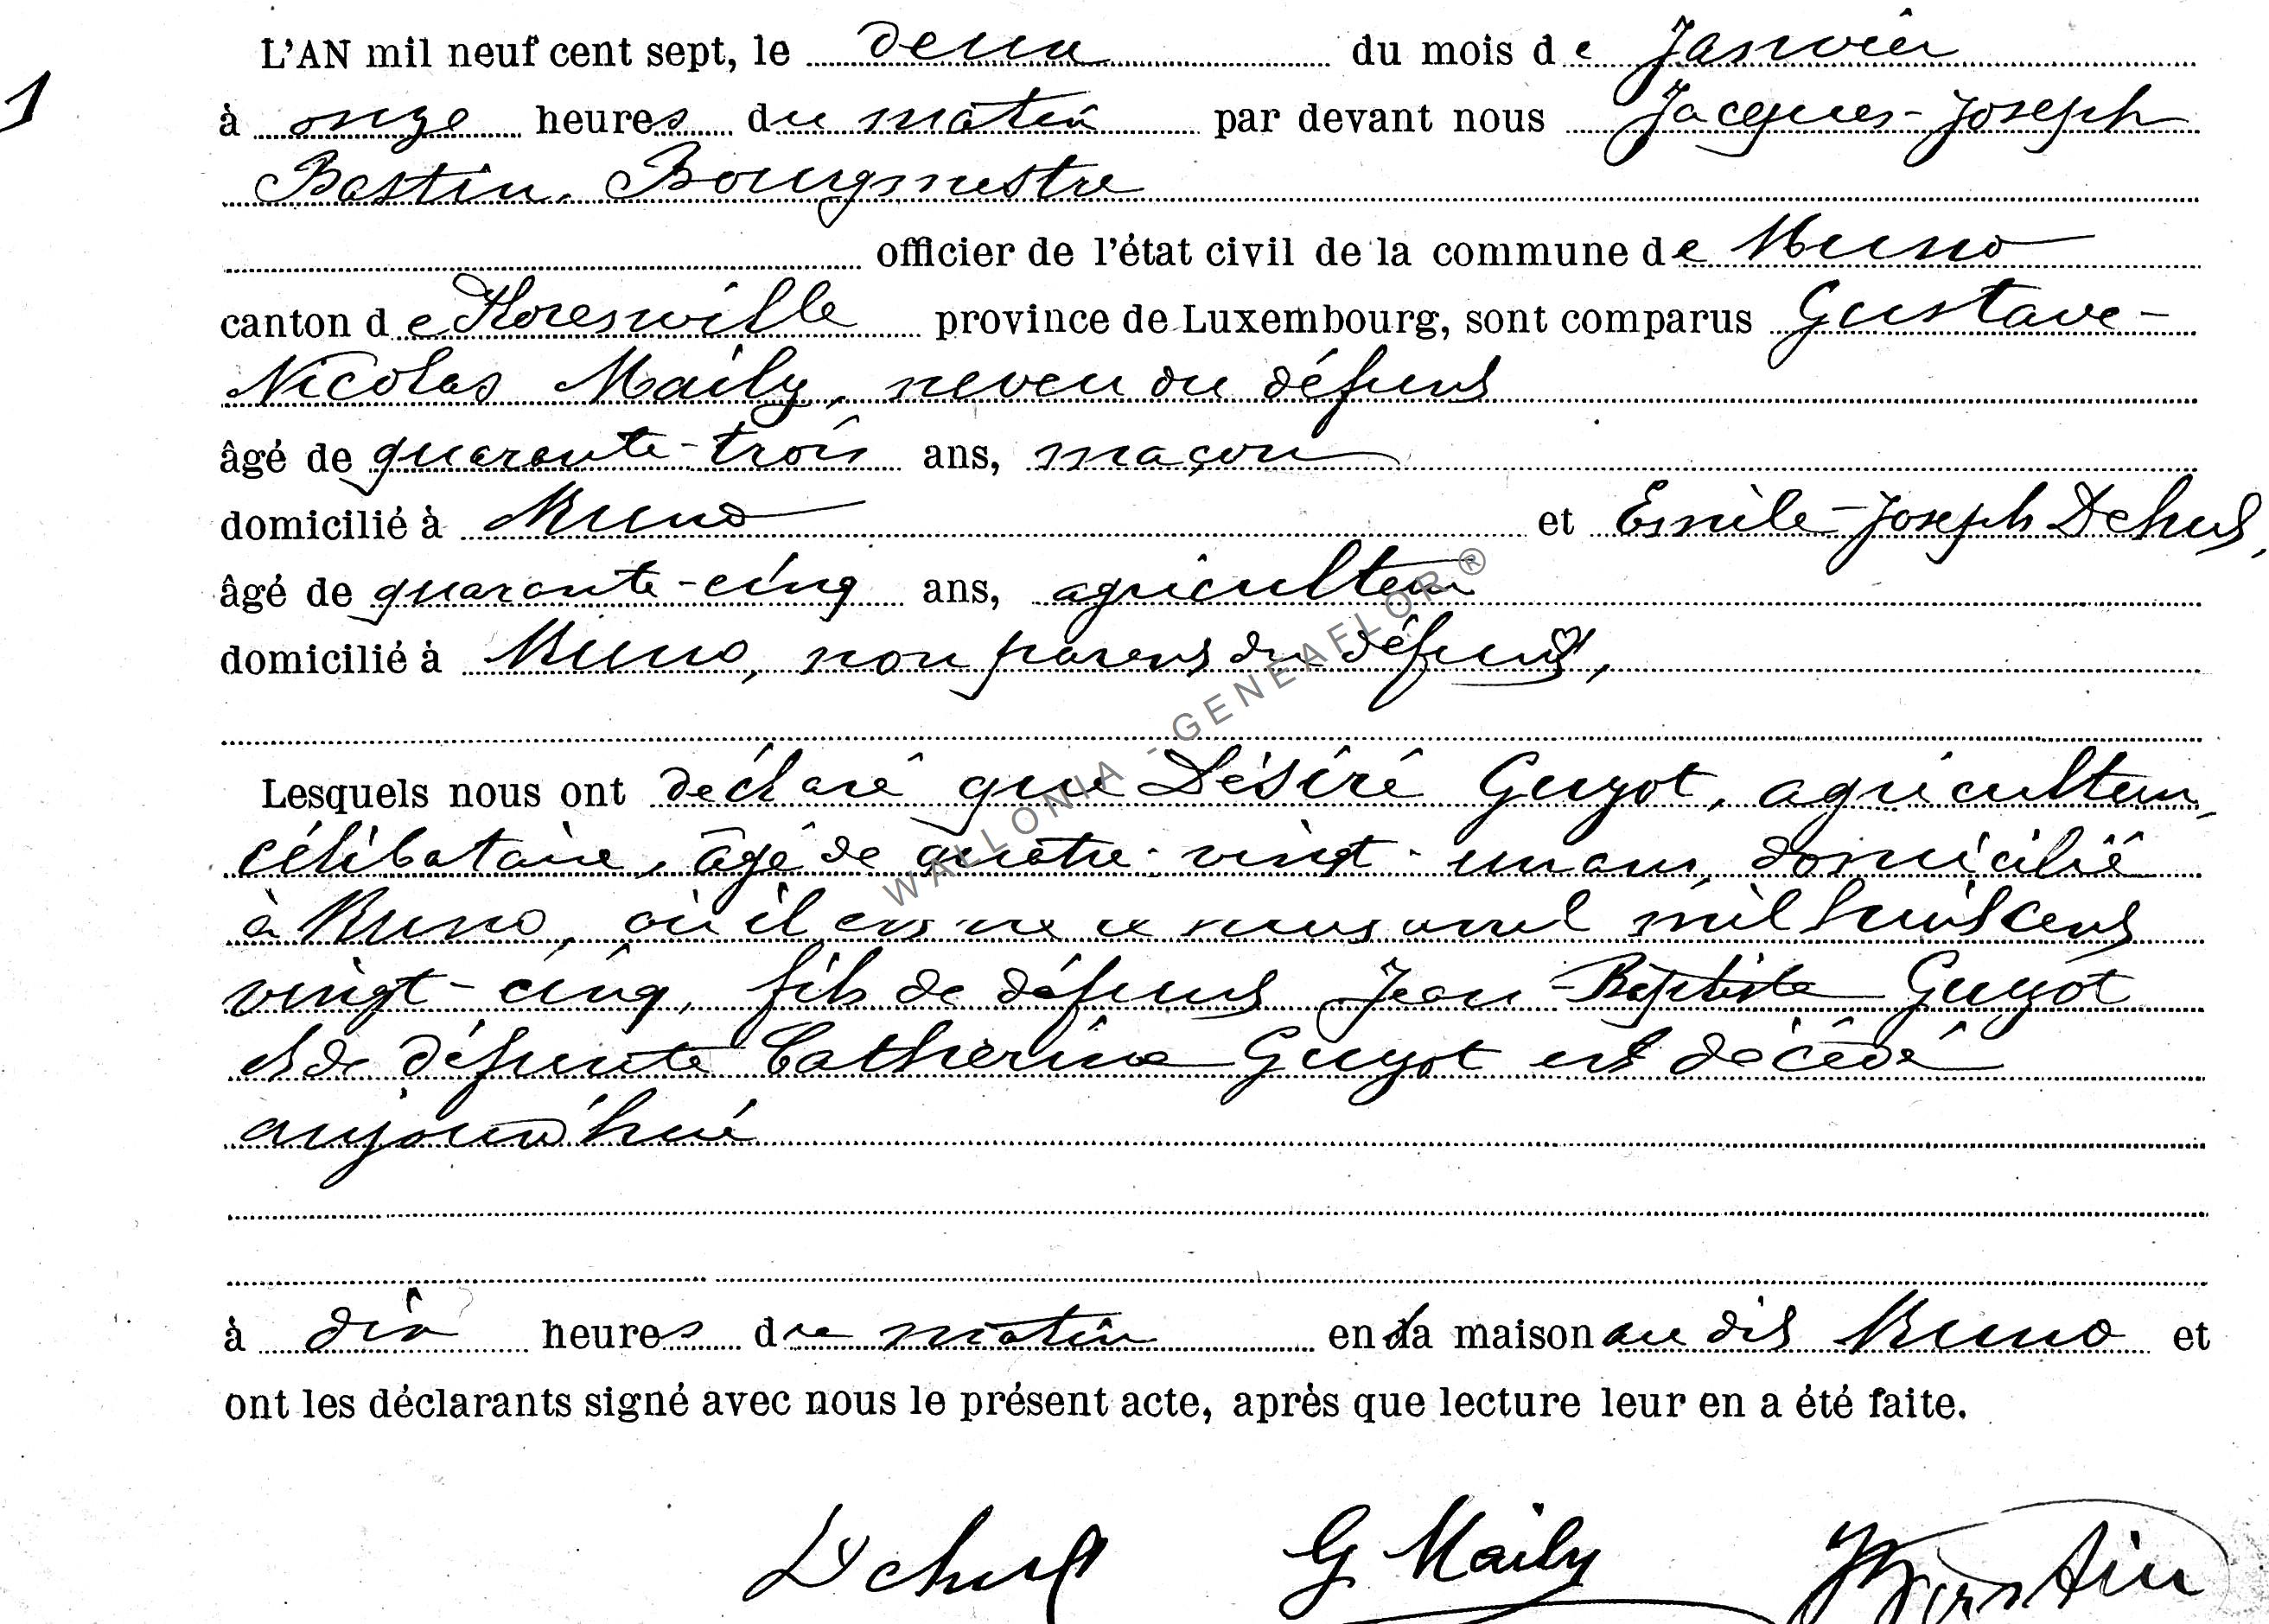 1
L'AN mil neuf cent sept, le deux du mois de Janvier
à onze heures du matin par devant nous Jacques-Joseph
Bastin, Bourgmestre
officier de l'état civil de la commune de Muno
canton de Florenville province de Luxembourg, sont comparus Gustave-
Nicolas Maily, neveu du défunt
âgé de quarante-trois ans, maçon
domicilié à Muno et Emile-Joseph Dehut,
âgé de quarante-cinq ans, agriculteur
domicilié à Muno, non parent du défunt,
Lesquels nous ont déclaré que Désiré Guyot, agriculteur,
célibataire, âgé de quatre-vingt-un ans, domicilié
à Muno, où il est né le mil huit cent
vingt-cinq, fils de défunt Jean-Baptiste Guyot
et de défunte Catherine Guyot est décédé
aujourd'hui
à dix heures du matin en sa maison au dit Muno et
ont les déclarants signé avec nous le présent acte, après que lecture leur en a été faite.
Dehut G Maily JBastin
WALLONIA - GENEAFLOR ®